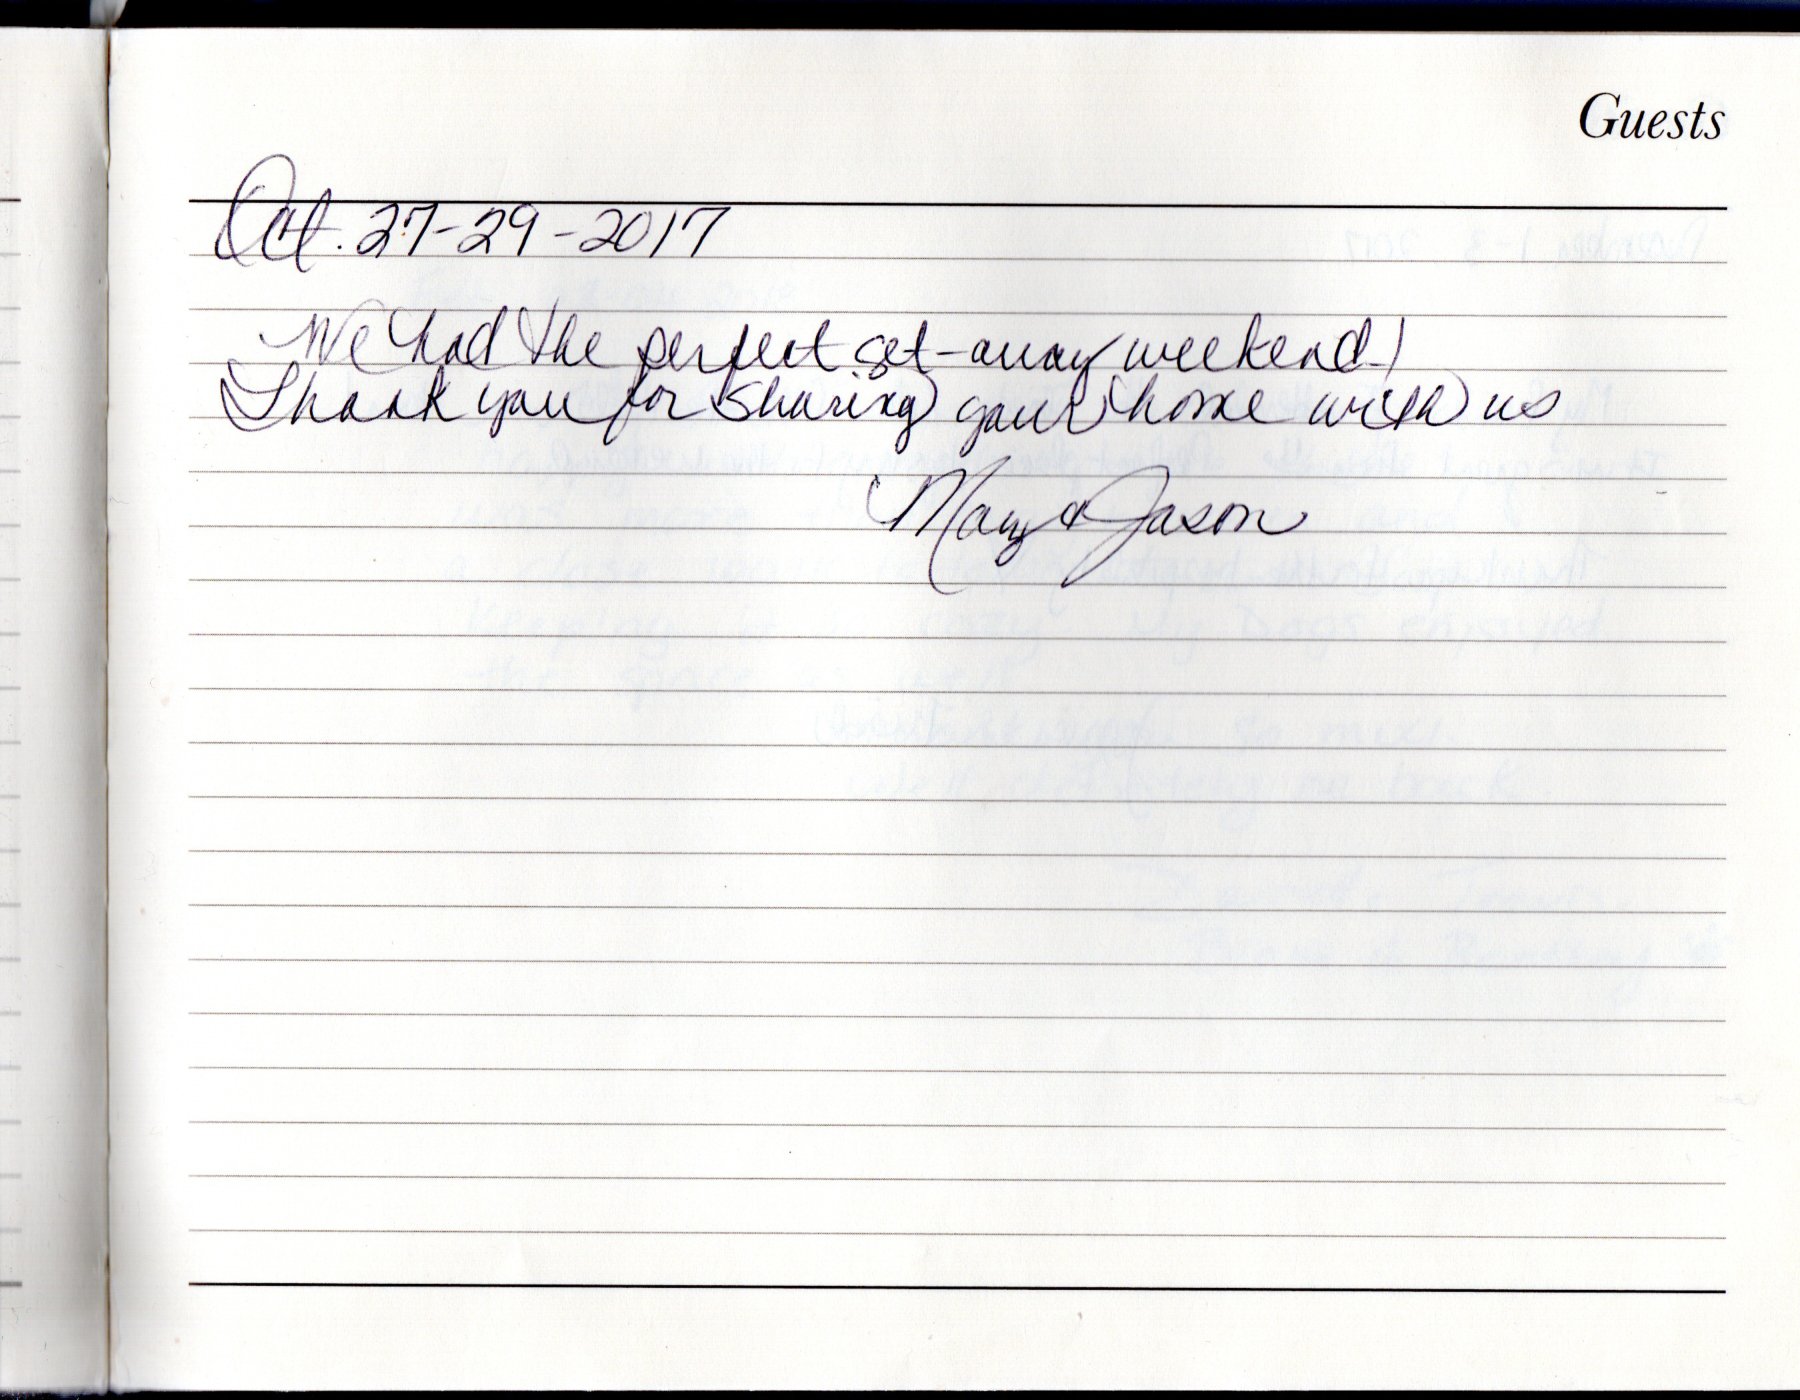 Guests
Oct. 27-29-2017
We had the perfect get-away weekend!
Thank you for sharing your home with us
Mary & Jason